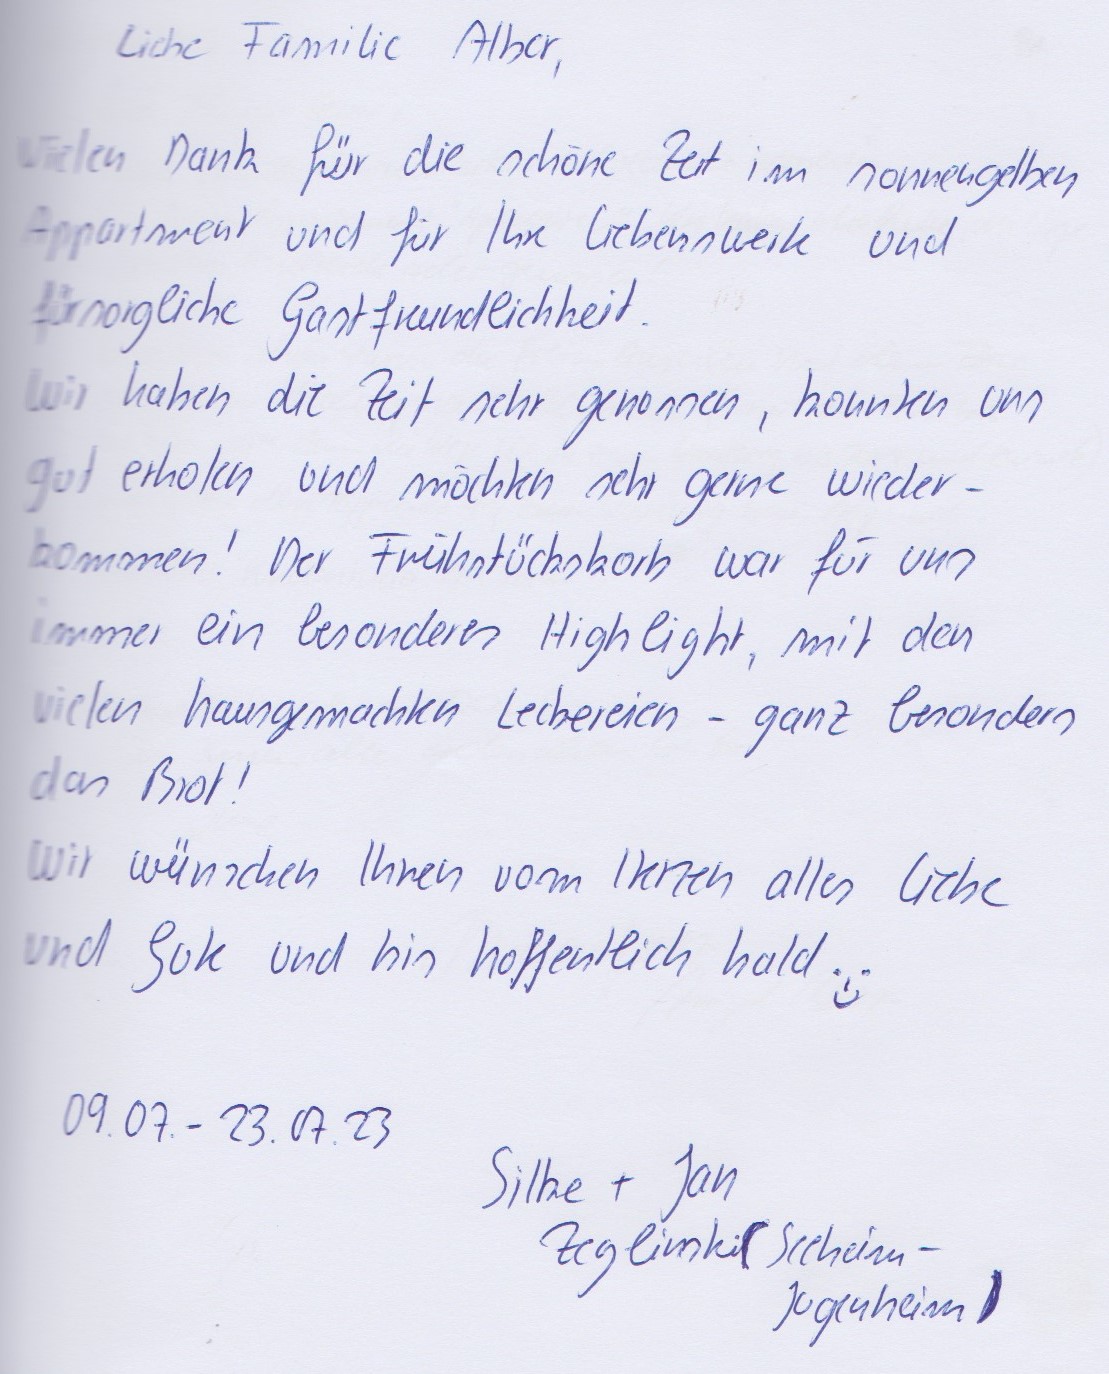 Liebe Familie Alber,
Vielen Dank für die schöne Zeit im sonnengelben
Appartment und für Ihre liebenswerte und
fürsorgliche Gastfreundlichkeit.
Wir haben die Zeit sehr genossen, konnten uns
gut erholen und möchten sehr gerne wieder-
kommen! Der Frühstückskorb war für uns
immer ein besonderes Highlight, mit den
vielen hausgemachten Leckereien - ganz besonders
das Brot!
Wir wünschen Ihnen vom Herzen alles Liebe
und Gute und bis hoffentlich bald...
09.07.- 23.07.23
Silke + Jan
Zeglinski (Seeheim-
Jugenheim)